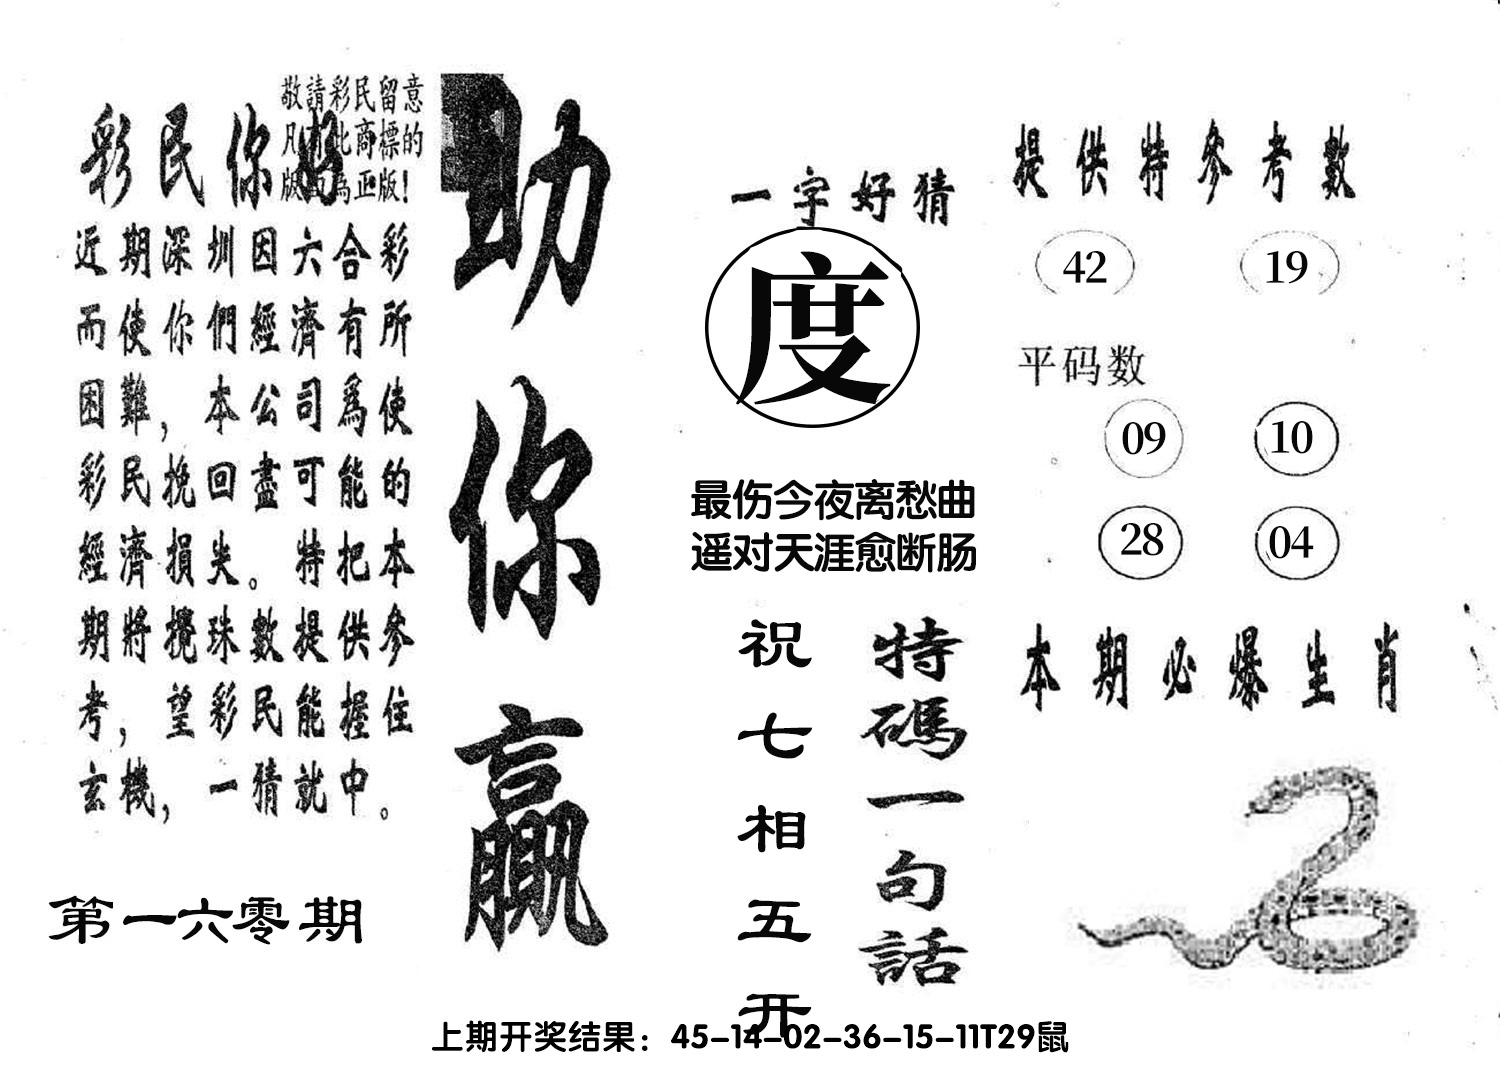 敬請彩民留意
凡有此商標的
版面為正版！
彩民你好
近期深圳因六合彩
而使你們經濟有所
困難，本公司爲使
彩民挽回盡可能的
經濟損失。特把本
期將攪珠數提供參
考，望彩民能握住
玄機，一猜就中。
第一六零期
助你贏
一字好猜
度
最伤今夜离愁曲
遥对天涯愈断肠
特碼一句話
祝七相五开
提供特參考數
42 19
平码数
09 10
28 04
本期必爆生肖
上期开奖结果：45-14-02-36-15-11T29鼠